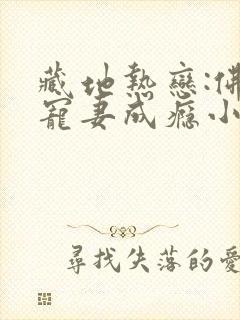 藏地熱戀:佛
寵妻成癮小
尋找失落的愛